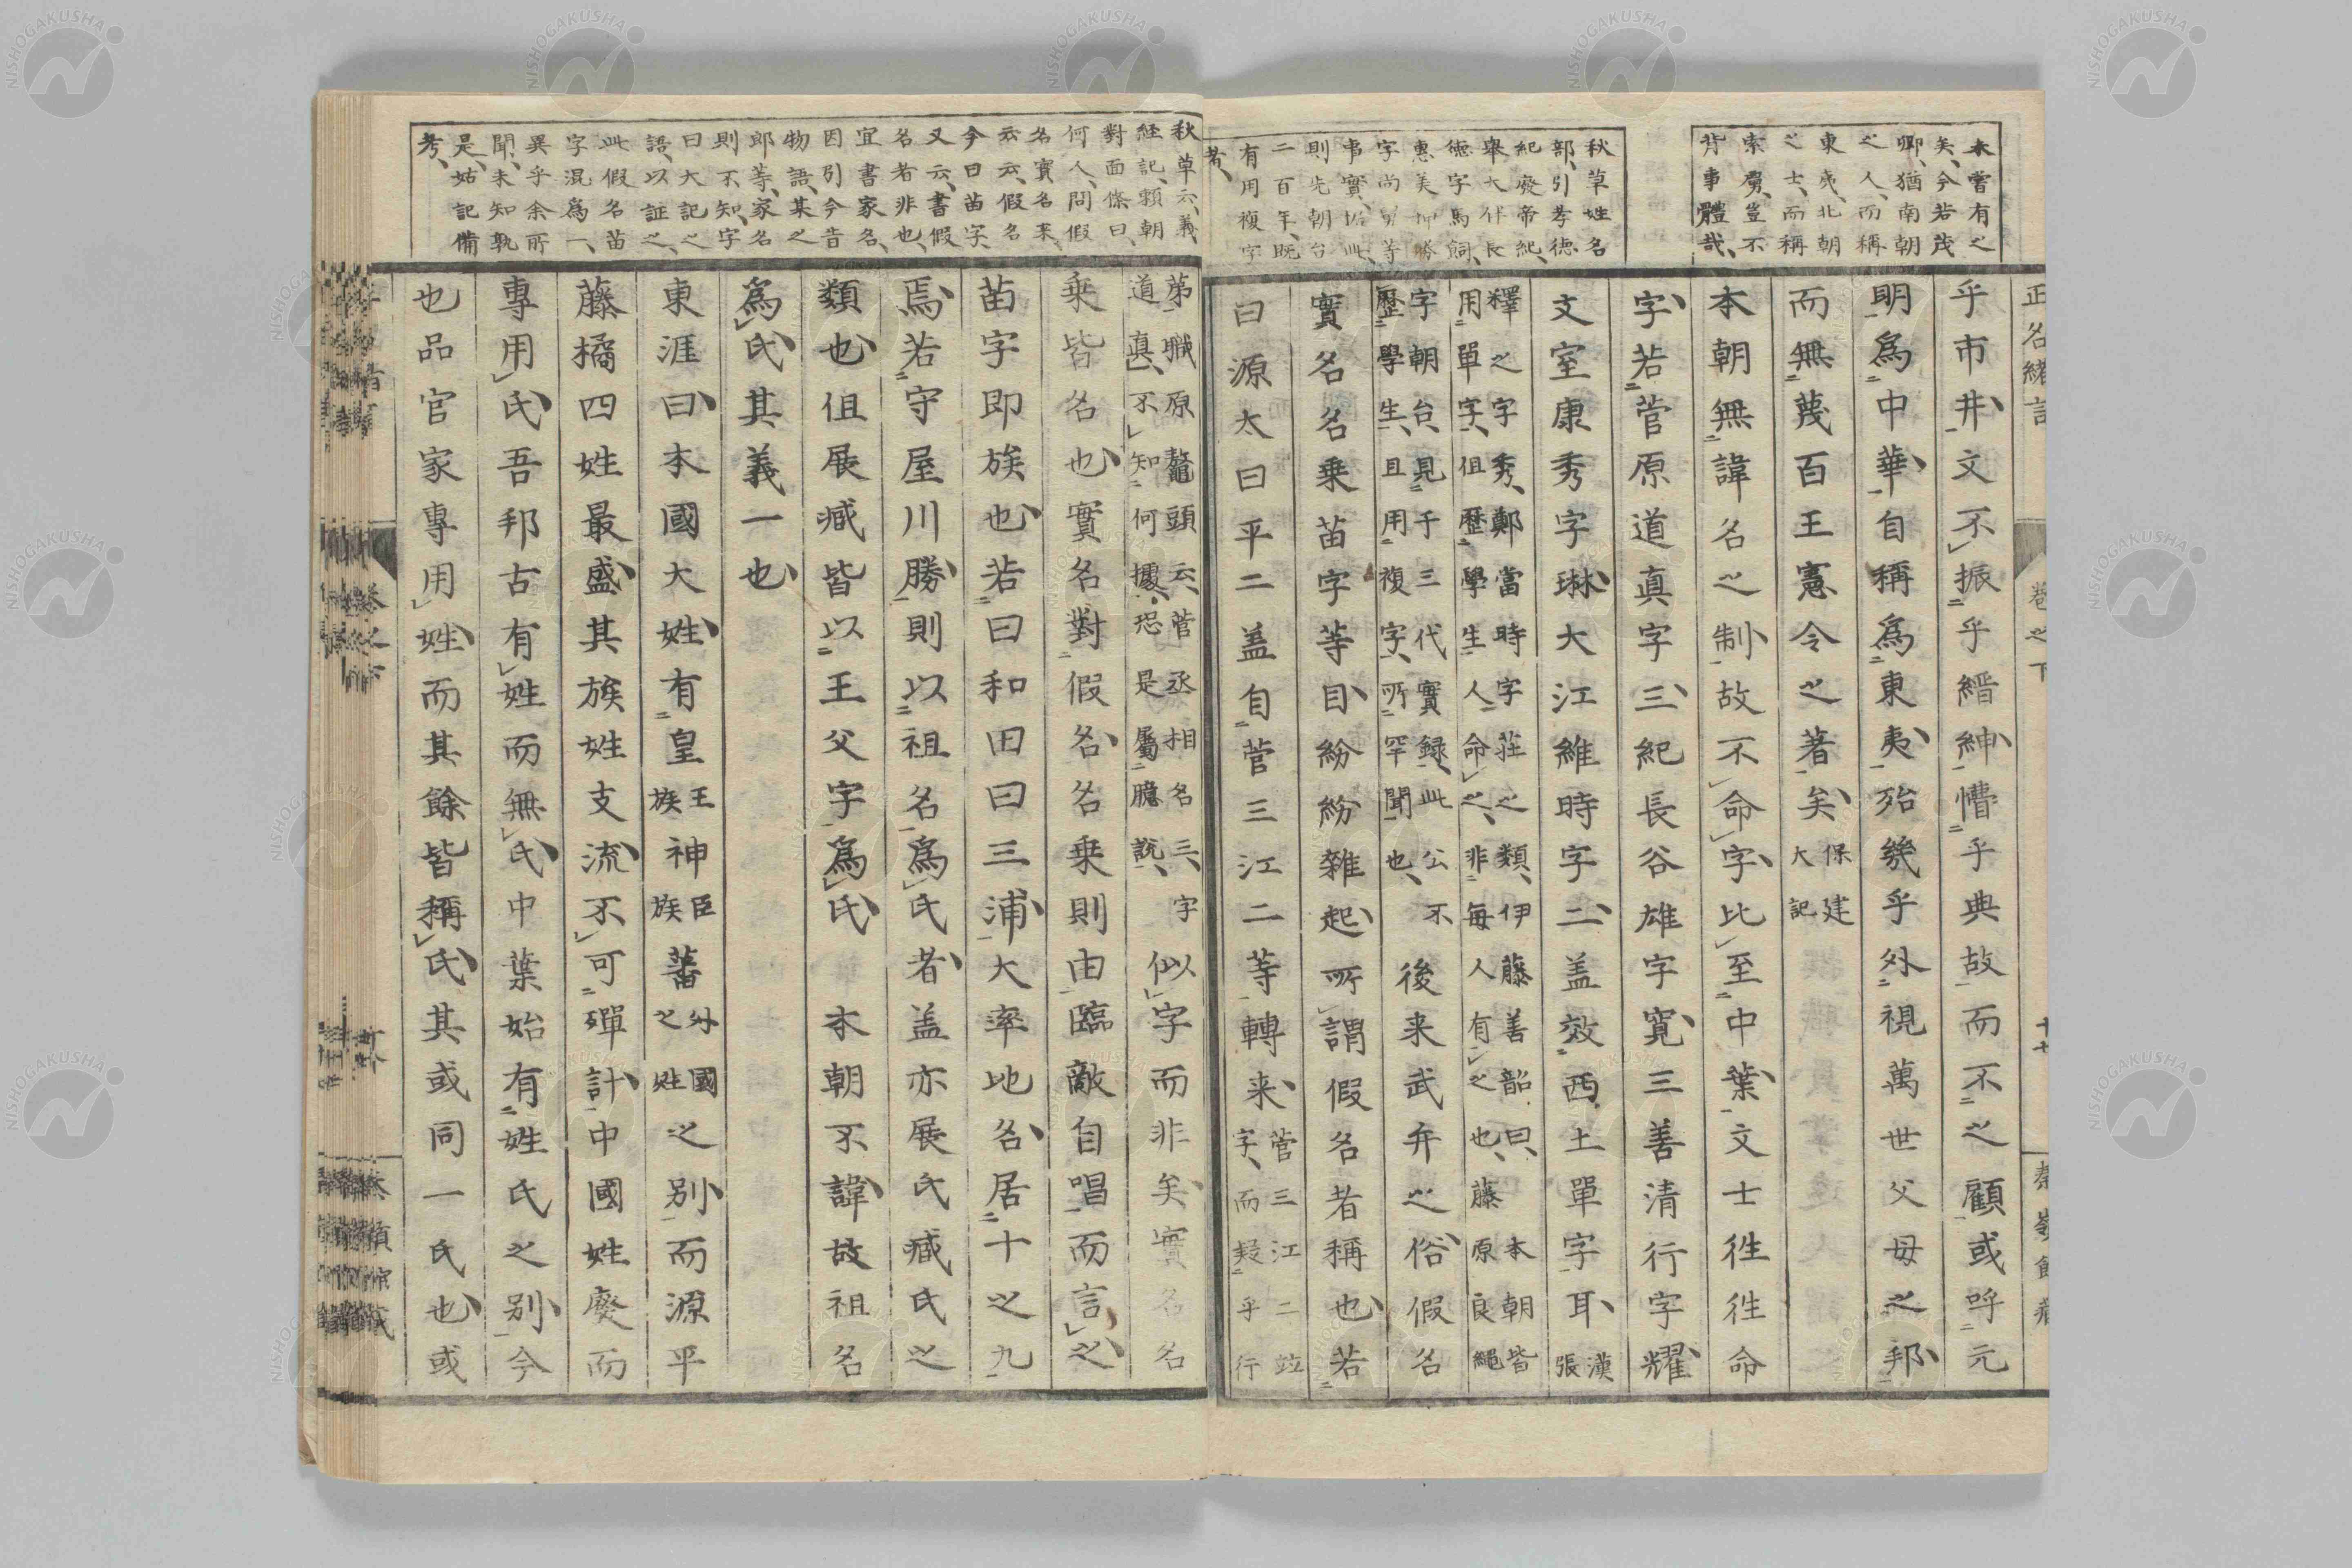 未嘗有之
矣、今若茂
卿、猶南朝
之人、而稱
東夷、北朝
之士、而稱
索虜、豈不
背事體哉、
秋草姓名
部、引孝德
紀廢帝紀、
舉大伴長
德字馬飼、
惠美押勝
字尚舅等
事實、據此、
則先朝台
二百年、既
有用複字
者、
正名緒言
卷之下
十七
乎市井、文不振乎縉紳、懵乎典故而不之顧或呼元
明爲中華、自稱爲東夷、殆幾乎外視萬世父母之邦、
而無蔑百王憲令之著矣、保建大記
本朝無諱名之制、故不命字、比至中葉、文士徃徃命
字、若菅原道真字三、紀長谷雄字寛、三善清行字耀、
文室康秀字琳、大江維時字二、盖效西土單字耳、漢張
釋之字秀、鄭當時字荘之類、伊藤善韶曰、本朝皆
用單字、但歷學生人命之、非每人有之也、藤原良繩
字朝台、見于三代實録、此公不
歷學生、且用複字、所罕聞也、
後来武弁之俗、假名
實名乗苗字等目、紛紛雜起、所謂假名者稱也、若
曰源太曰平二盖自菅三江二等轉来、菅三江二竝
字、而疑乎行
秋草云、義
經記、頼朝
對面條曰、
何人、問假
名實名来
云云、假名
今曰苗字、
又云、書假
名者非也、
宜書家名、
因引今昔
物語、某之
郎等、家名
則不知、字
曰大記之
語、以証之、
此假名苗
字混爲一、
異乎余所
聞、未知孰
是、姑記備
考、
第職原鼇頭云、菅丞相名三、字
道真、不知何據、恐是屬臆説、
似字而非矣、實名名
乗皆名也、實名對假名、名乗則由臨敵自唱而言之、
苗字即族也、若曰和田曰三浦、大率地名、居十之九
焉、若守屋川勝、則以祖名爲氏者、盖亦展氏臧氏之
類也、但展臧皆以王父字爲氏、本朝不諱、故祖名
爲氏、其義一也、
東涯曰、本國大姓、有皇王族神臣族蕃外國之姓之別、而源平
藤橘四姓最盛、其族姓支流、不可殫計、中國姓廢而
專用氏、吾邦古有姓而無氏、中葉始有姓氏之别、今
也品官家專用姓、而其餘皆稱氏、其或同一氏也、或